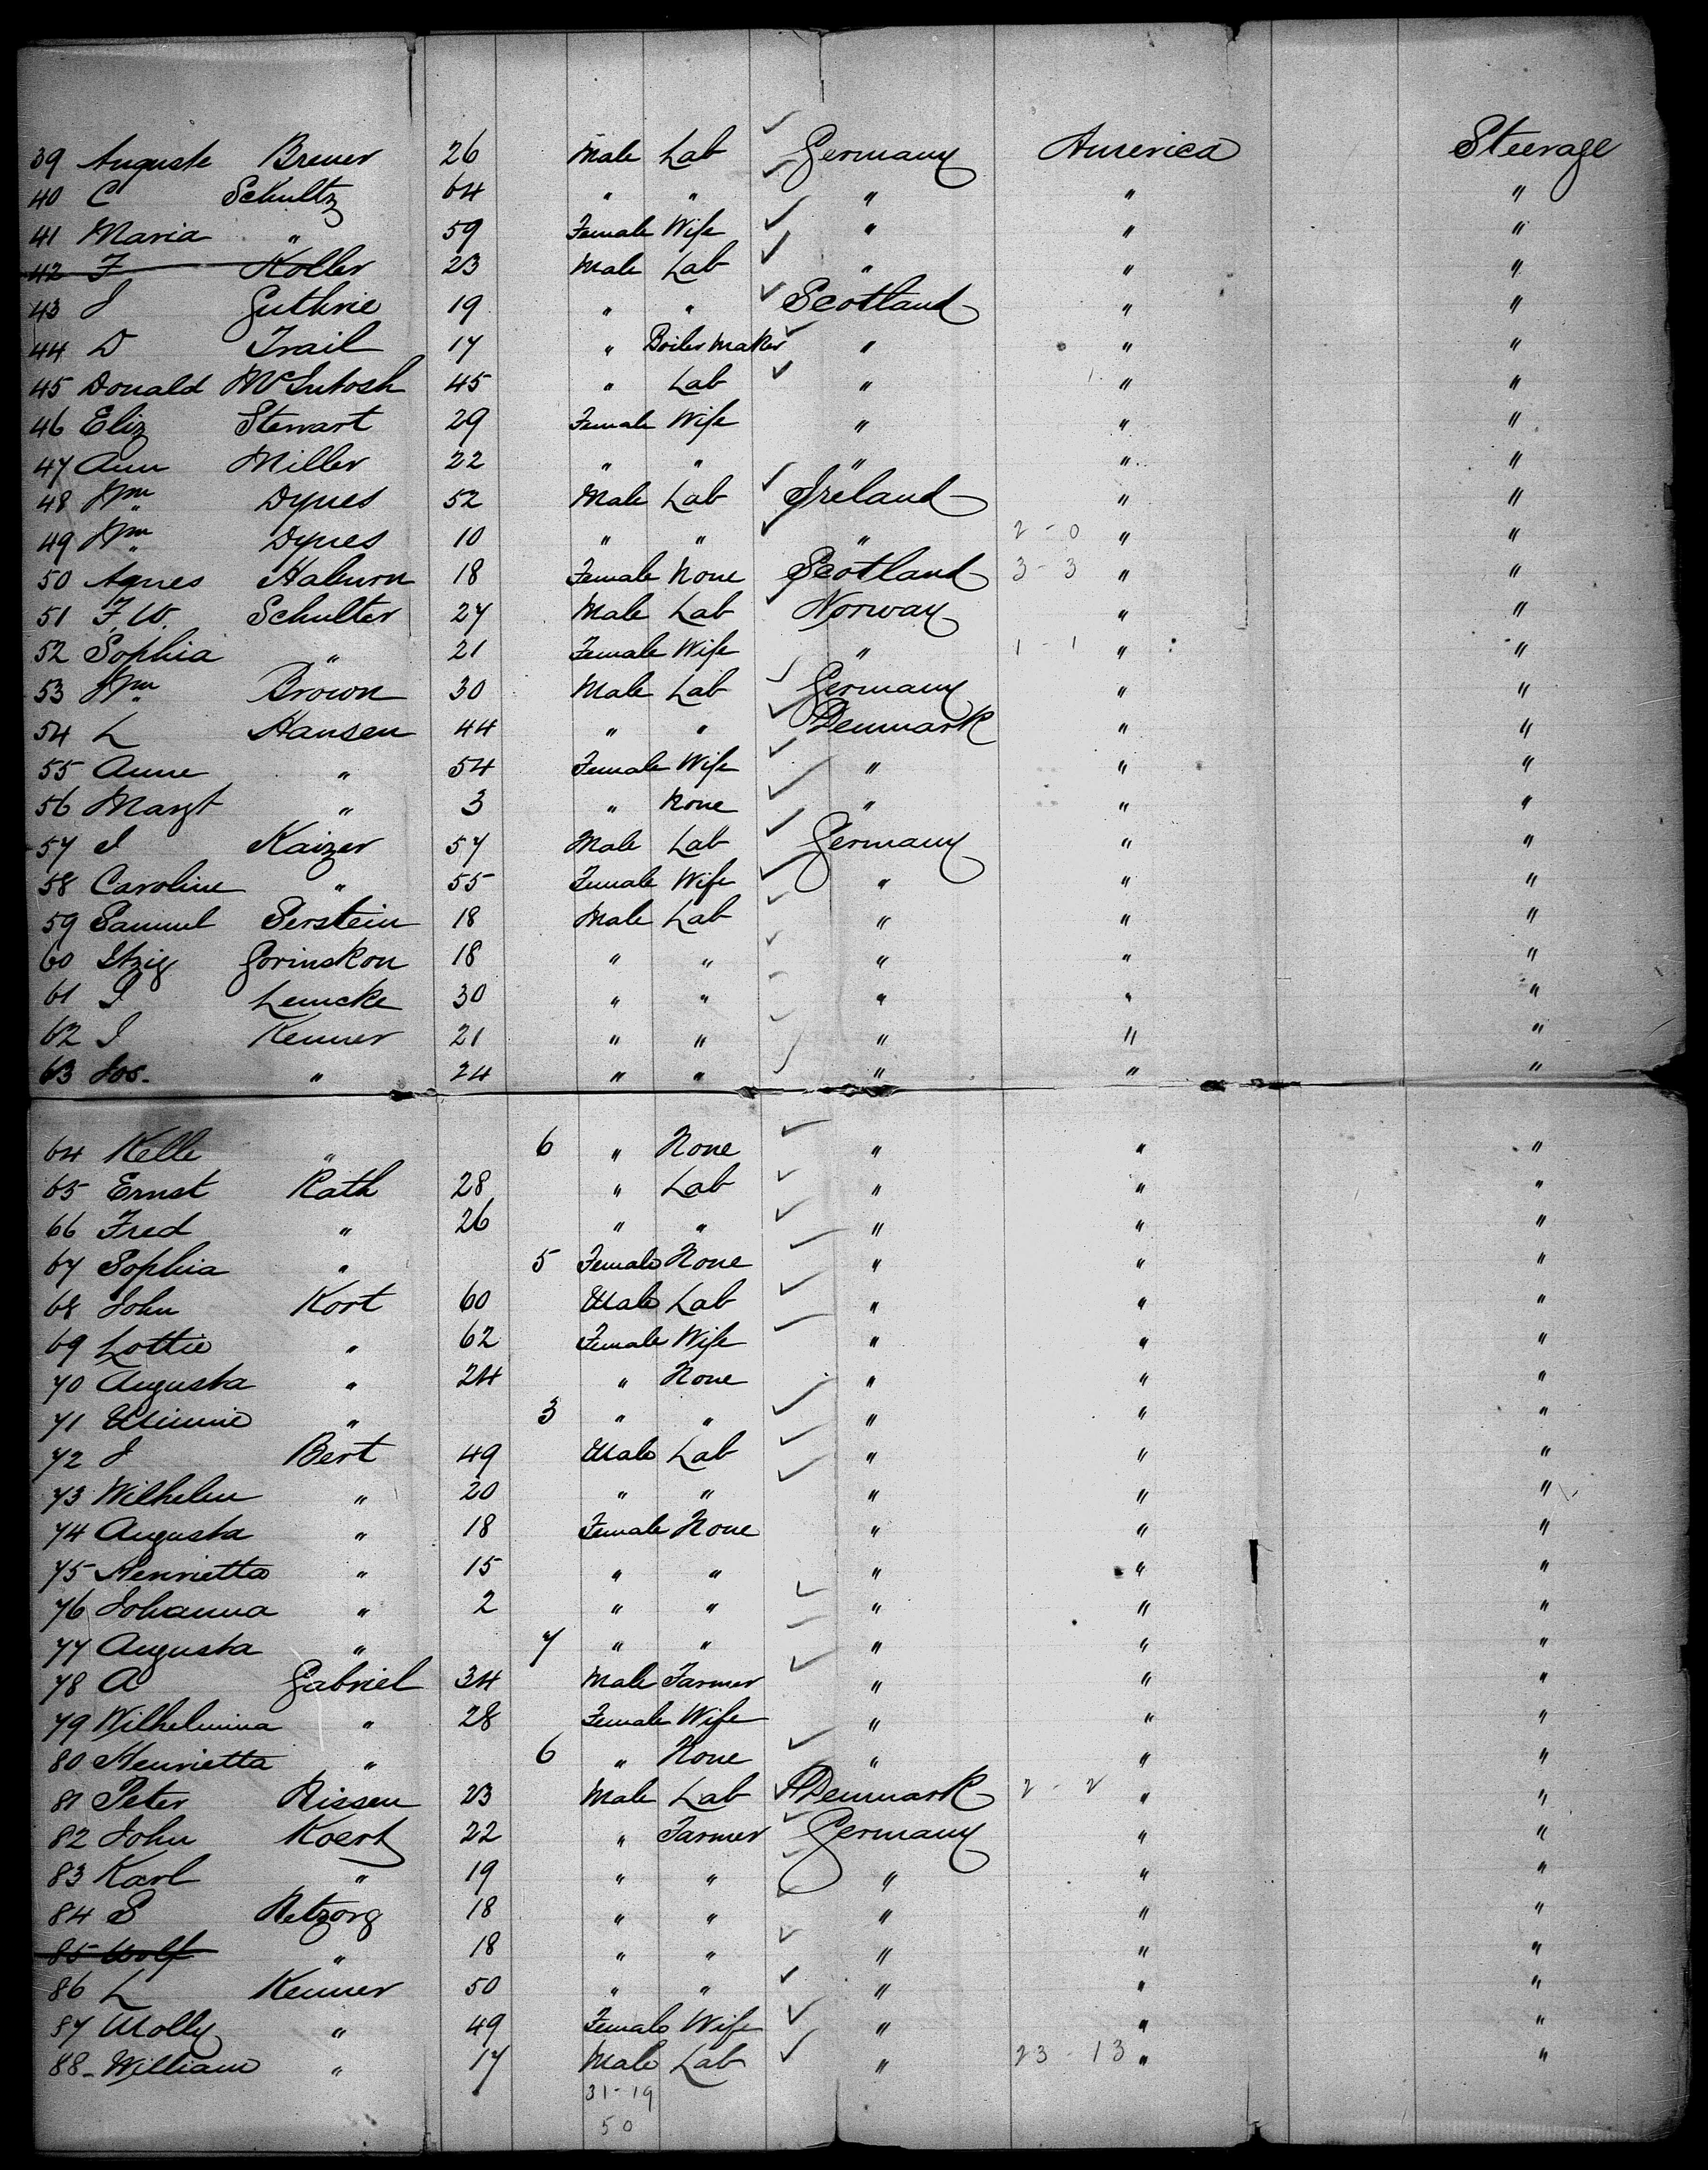 39 Auguste Breuer 26 Male Lab Germany America Steerage
40 C Schultz 64 " " " " "
41 Maria " 59 Female Wife " " "
42 F Koller 23 Male Lab " " "
43 J Guthrie 19 " " Scotland " "
44 D Trail 17 " Boiler Maker " " "
45 Donald McIntosh 45 " Lab " " "
46 Eliz Stewart 29 Female Wife " " "
47 Ann Miller 22 " " " " "
48 Wm Dynes 52 Male Lab Ireland " "
49 Wm Dynes 10 " " " 2 - 0 " "
50 Agnes Female None Scotland 3 - 3 " "
51 F.W. Schulter 27 Male Lab Norway " "
52 Sophia " 21 Female Wife " 1 - 1 " "
53 Wm Brown 30 Male Lab Germany " "
54 L Hansen 44 " " Denmark " "
55 Anne " 54 Female Wife " " "
56 Margt " 3 " None " " "
57 J Kaizer 57 Male Lab Germany " "
58 Caroline " 55 Female Wife " " "
59 Samuel Serstein 18 Male Lab " " "
60 Itzig Gorinskon 18 " " " " "
61 S Lemcke 30 " " " " "
62 J Kenner 21 " " " " "
63 Jos. " 24 " " " " "
64 Kelle " 6 " None " " "
65 Ernst Rath 28 " Lab " " "
66 Fred " 26 " " " " "
67 Sophia " 5 Female None " " "
68 John Kort 60 Male Lab " " "
69 Lottie " 62 Female Wife " " "
70 Augusta " 24 " None " " "
71 Minnie " 3 " " " " "
72 J Bert 49 Male Lab " " "
73 Wilhelm " 20 " " " " "
74 Augusta " 18 Female None " " "
75 Henrietta " 15 " " " " "
76 Johanna " 2 " " " " "
77 Augusta " 7 " " " " "
78 A Gabriel 34 Male Farmer " " "
79 Wilhelmina " 28 Female Wife " " "
80 Henrietta " 6 " None " " "
81 Peter Nissen 23 Male Lab Denmark 2 - 2 " "
82 John Koert 22 " Farmer Germany " "
83 Karl " 19 " " " " "
84 S Netzorg 18 " " " " "
85 Wolf " 18 " " " " "
86 L Kenner 50 " " " " "
87 Molly " 49 Female Wife " " "
88 - William " 17 Male Lab " 23 - 13 " "
31 - 19
50